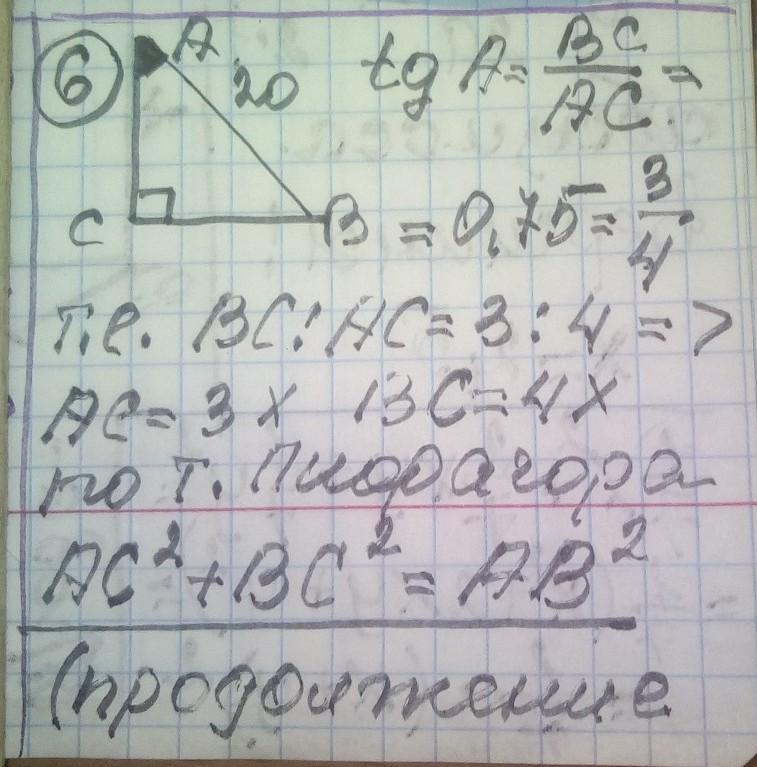 6 A 20 tg A = BC/AC =
C B = 0,75 = 3/4
т.е. BC : AC = 3 : 4 =>
AC = 3x BC = 4x
по т. Пифагора
AC² + BC² = AB²
(продолжение